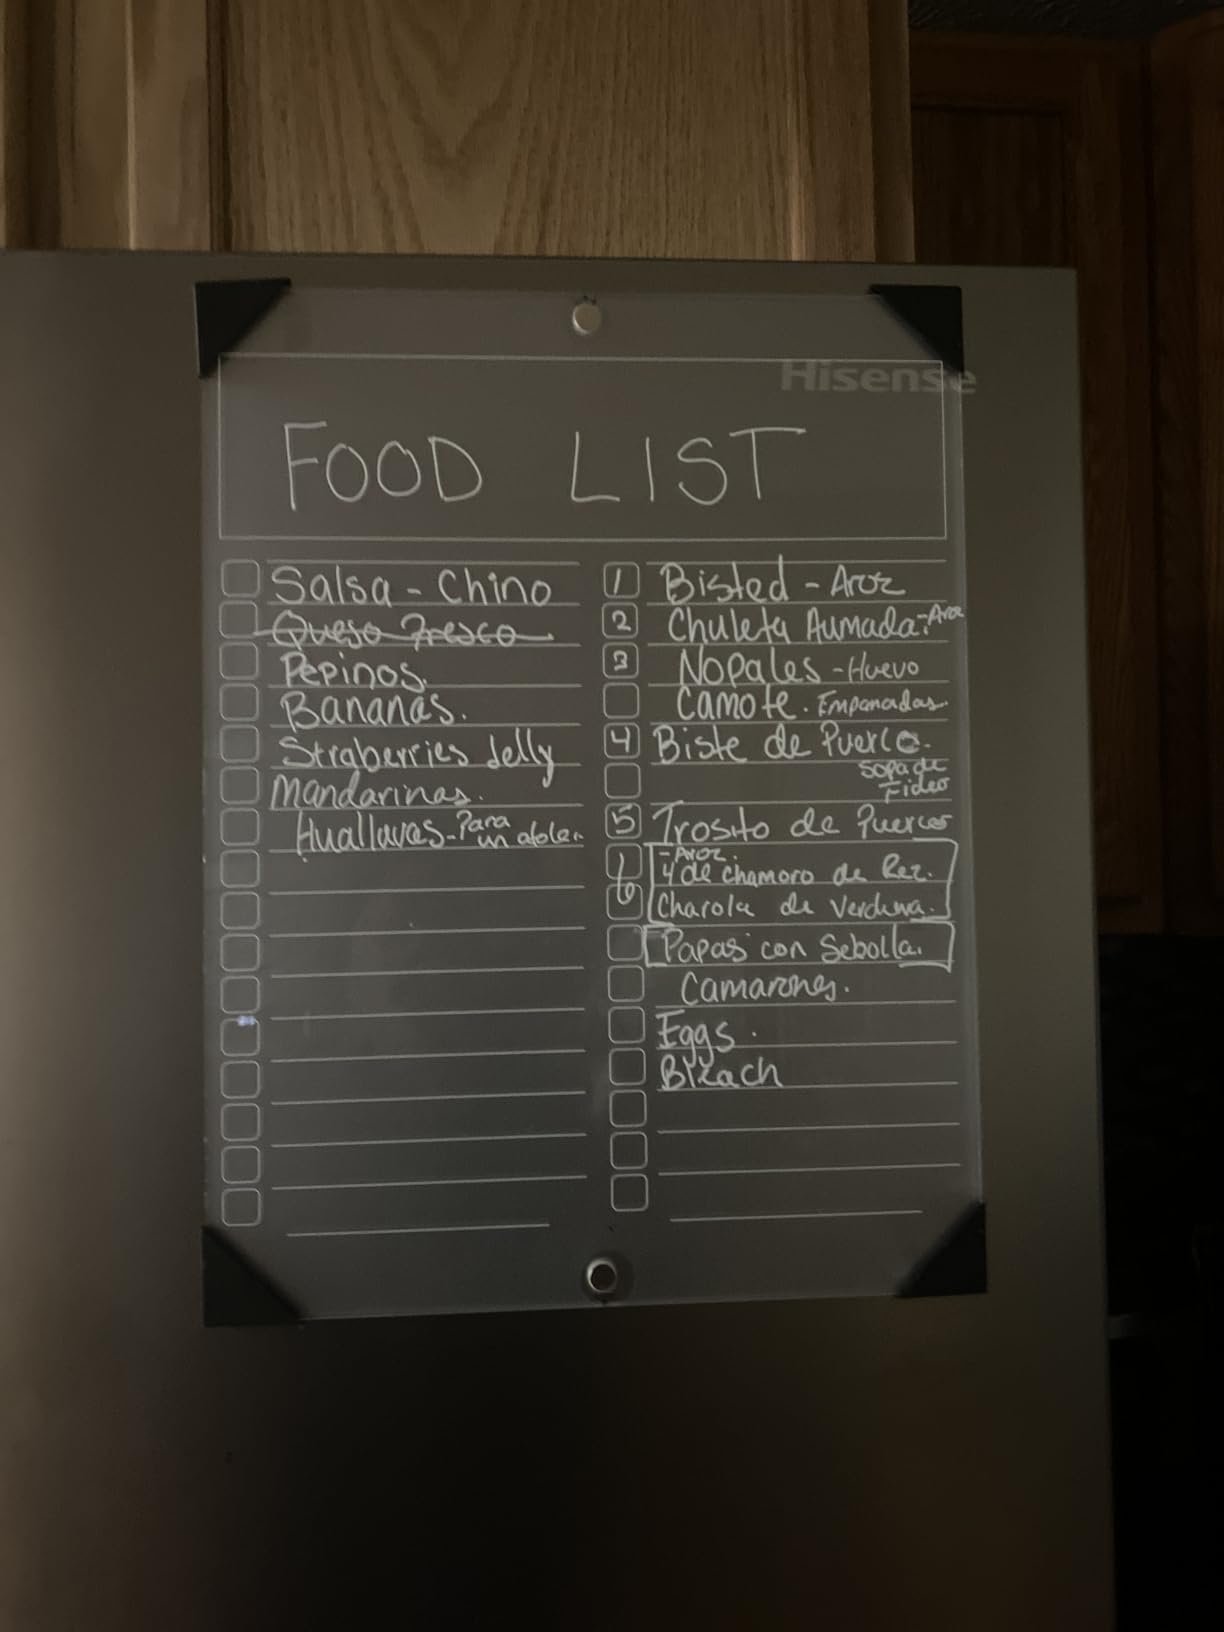 Hisense
FOOD LIST
Salsa - Chino
Queso Fresco
Pepinos.
Bananas.
Straberries Jelly
Mandarinas.
Huallavas - Para
un atole.
1 Bisted - Aroz
2 Chuleta Aumada - Aroz
3 Nopales - Huevo
Camote. Empanadas.
4 Biste de Puerco.
Sopa de
Fideo
5 Trosito de Puercos
- Aroz.
6 4 de chamoro de Rez.
Charola de Verdura.
Papas con Sebolla.
Camarones.
Eggs.
Bleach